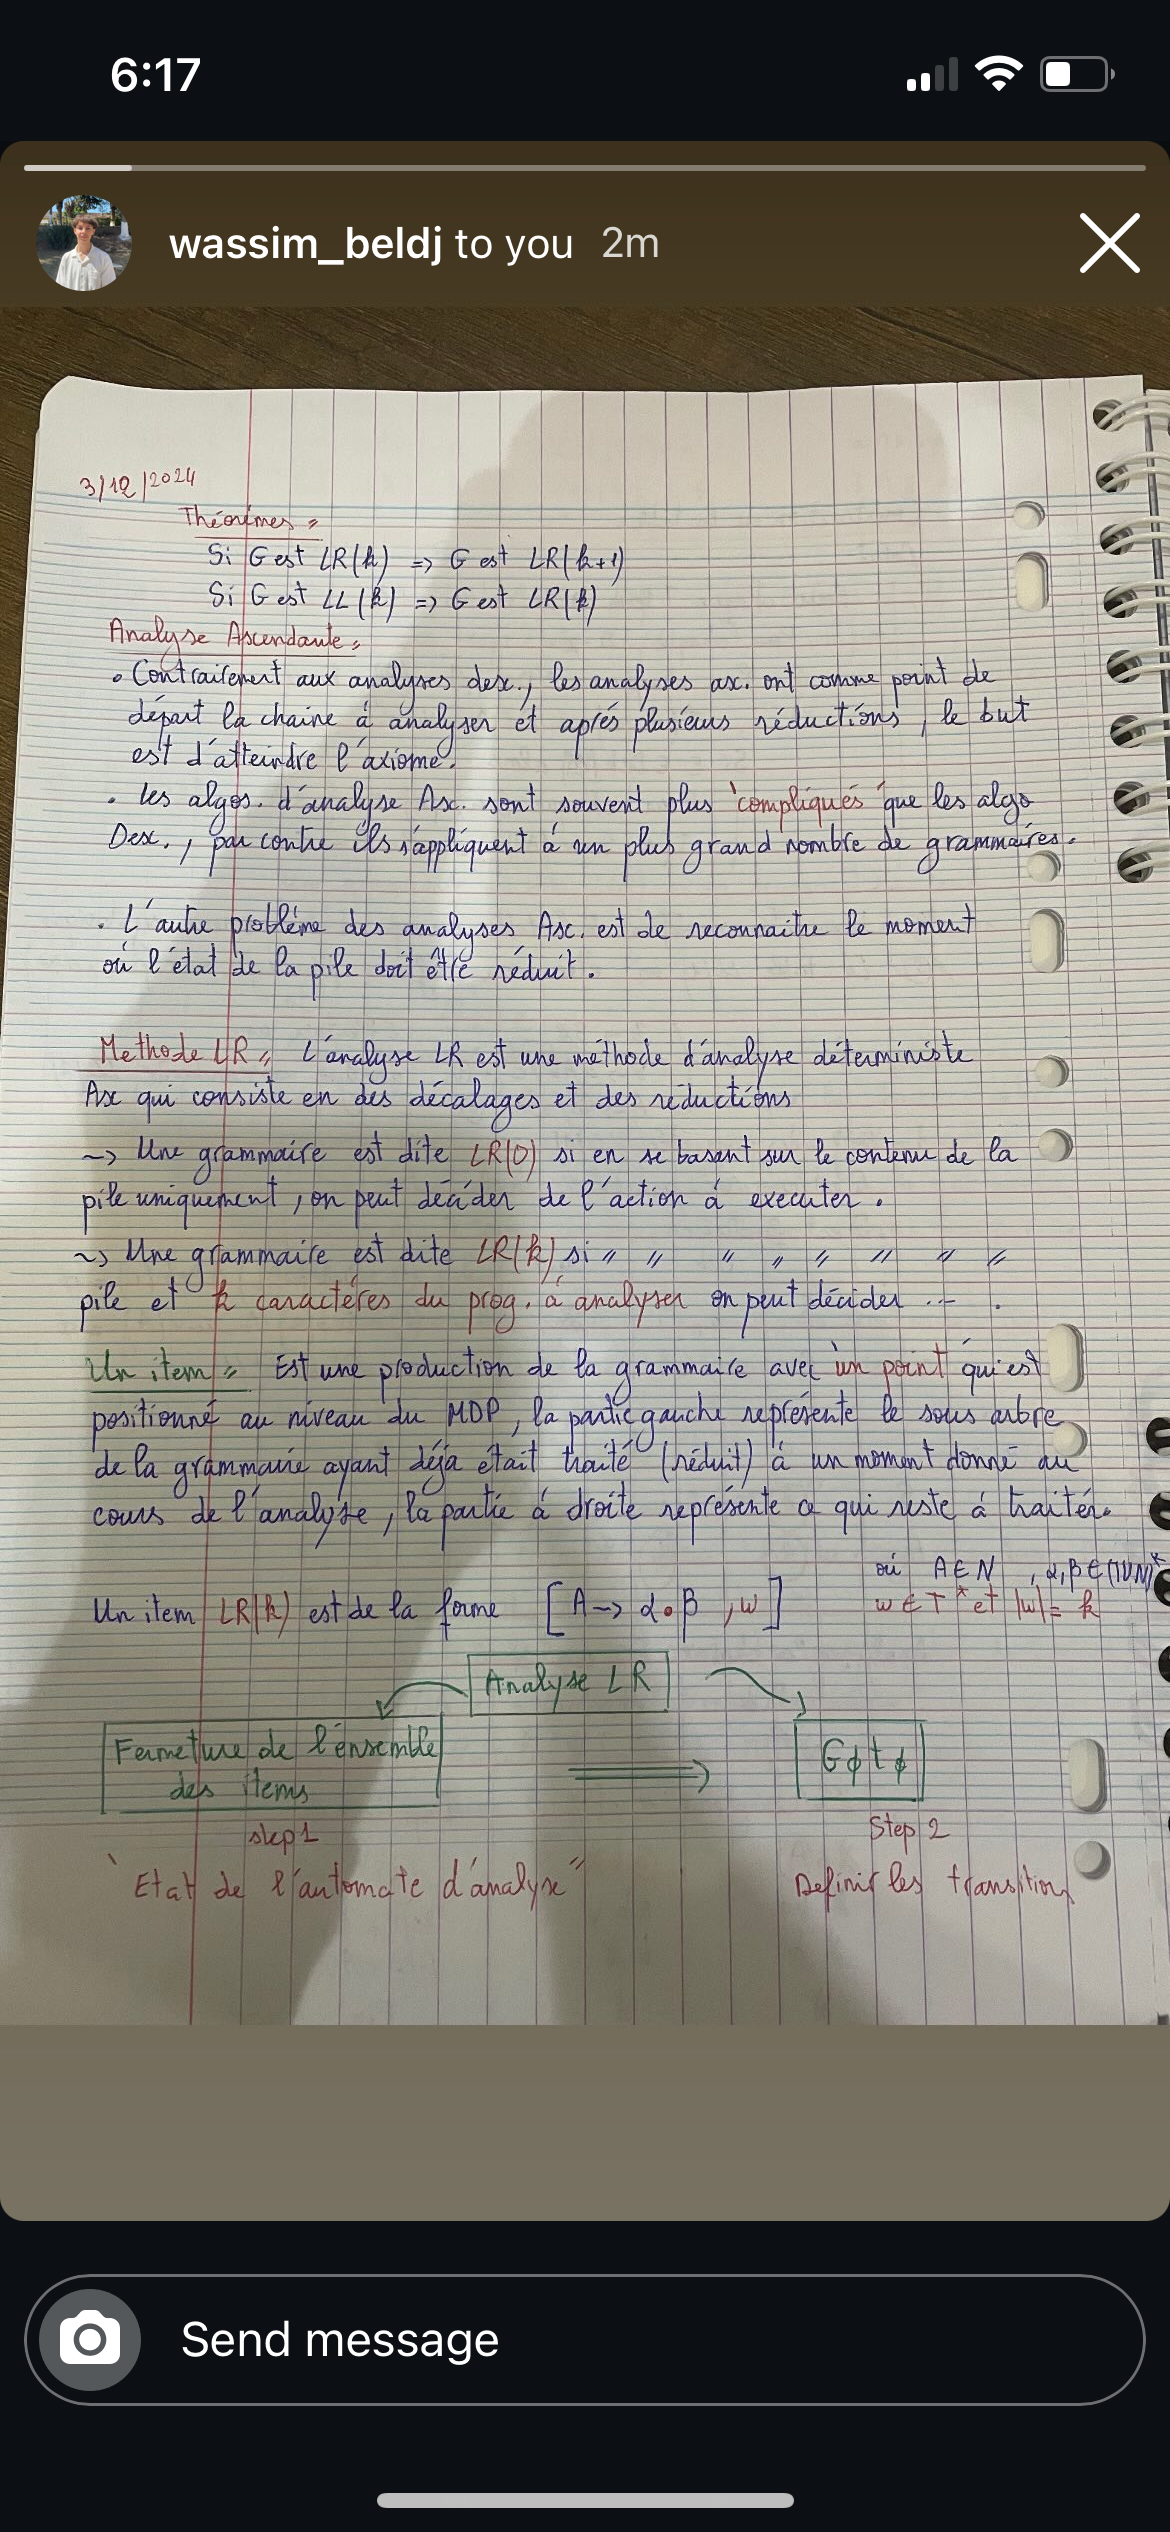 6:17
wassim_beldj to you 2m
3/12/2024
Théorèmes =
Si G est LR(k) => G est LR(k+1)
Si G est LL(k) => G est LR(k)
Analyse Ascendante =
• Contrairement aux analyses desc., les analyses asc. ont comme point de
départ la chaine à analyser et après plusieurs réductions, le but
est d'atteindre l'axiome.
• les algos. d'analyse Asc. sont souvent plus "compliqués" que les algo
Desc., par contre ils s'appliquent à un plus grand nombre de grammaires.
• L'autre problème des analyses Asc. est de reconnaitre le moment
où l'état de la pile doit être réduit.
Methode LR = L'analyse LR est une méthode d'analyse déterministe
Asc qui consiste en des décalages et des réductions
~> Une grammaire est dite LR(0) si en se basant sur le contenu de la
pile uniquement, on peut décider de l'action à executer.
~> Une grammaire est dite LR(k) si " " " " " " " "
pile et k caractères du prog. à analyser on peut décider ... .
Un item = Est une production de la grammaire avec un point qui est
positionné au niveau du MDP, la partie gauche représente le sous arbre
de la grammaire ayant déja était traité (réduit) à un moment donné au
cours de l'analyse, la partie à droite représente ce qui reste à traiter.
où A∈N , α,β∈(TUN)*
Un item LR(k) est de la forme [A -> α•β , w] w∈T* et |w|= k
Analyse LR
Fermeture de l'ensemble
des items
Gφtφ
step 1
Step 2
"Etat de l'automate d'analyse"
Definir les transitions
Send message